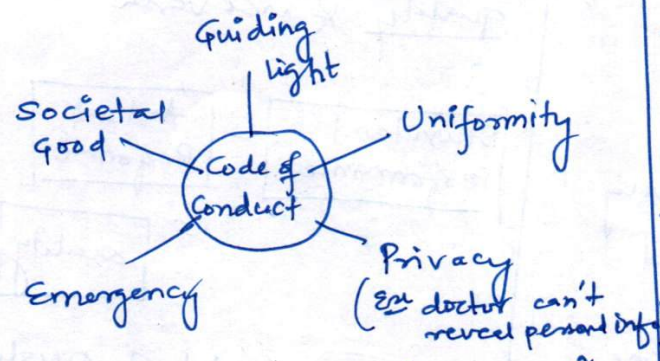 Guiding
Light
Societal
Good
Uniformity
Code of
Conduct
Emergency
Privacy
(Ex doctor can't
reveal